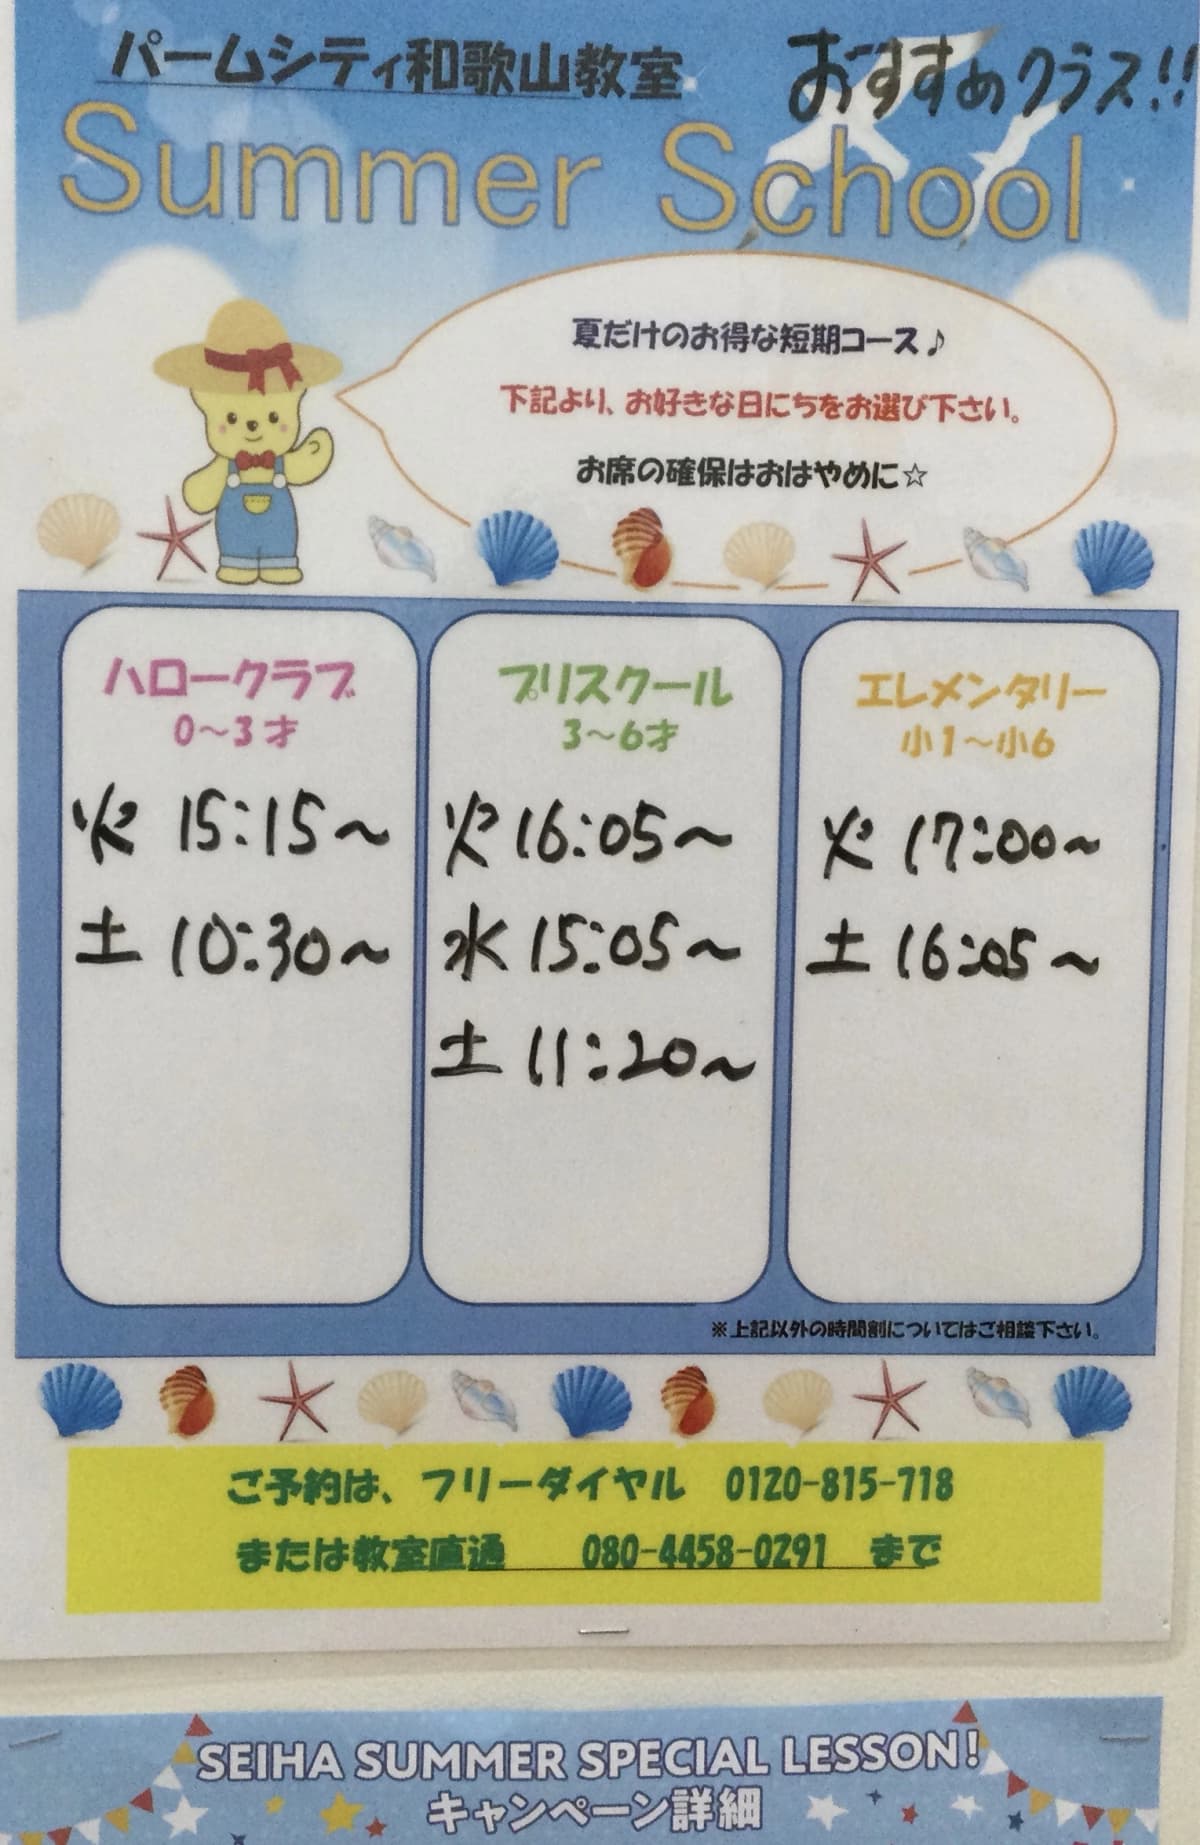 パームシティ和歌山教室 おすすめクラス!!
Summer School
夏だけのお得な短期コース♪
下記より、お好きな日にちをお選び下さい。
お席の確保はおはやめに☆
ハロークラブ
0～3才
火 15:15～
土 10:30～
プリスクール
3～6才
火 16:05～
水 15:05～
土 11:20～
エレメンタリー
小1～小6
火 17:00～
土 16:05～
※上記以外の時間割についてはご相談下さい。
ご予約は、フリーダイヤル 0120-815-718
または教室直通 080-4458-0291 まで
SEIHA SUMMER SPECIAL LESSON!
キャンペーン詳細